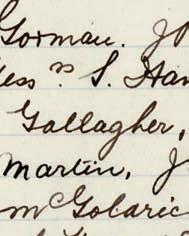 Gorman. Jo
ess vs S. Han
Gallagher,
Martin, J
McGolaric